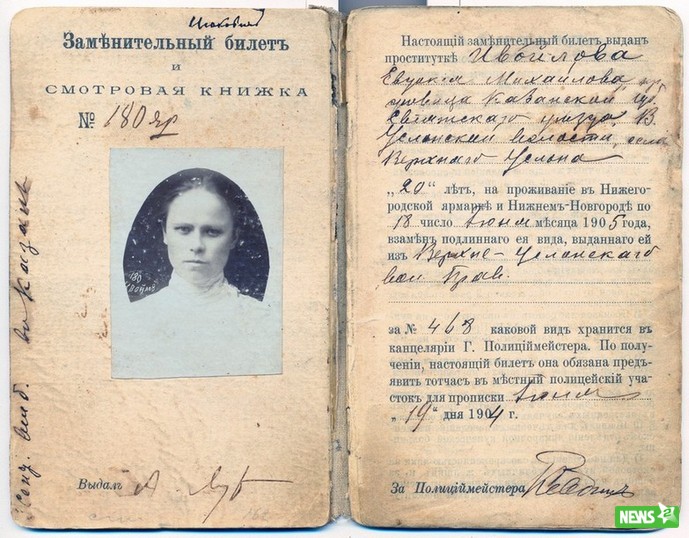 Замѣнительный билетъ
и
СМОТРОВАЯ КНИЖКА
№ 180 яр
180
Выдалъ
Настоящій замѣнительный билетъ выданъ
проституткѣ Ивойлова
Евдокия Михайлова
Казанской губ.
Свіяжскаго уѣзда, В.
Услонской волости, села
Верхняго Услона
„20“ лѣтъ, на проживаніе въ Нижего-
родской ярмаркѣ и Нижнемъ-Новгородѣ по
18 число іюня мѣсяца 1905 года,
взамѣнъ подлиннаго ея вида, выданнаго ей
изъ Верхне-Услонскаго
вол. Прав.
за № 468 каковой видъ хранится въ
канцеляріи Г. Полиціймейстера. По полу-
ченіи, настоящій билетъ она обязана предъ-
явить тотчасъ въ мѣстный полицейскій уча-
стокъ для прописки іюня
„19“ дня 1904 г.
За Полиціймейстера
NEWS 2